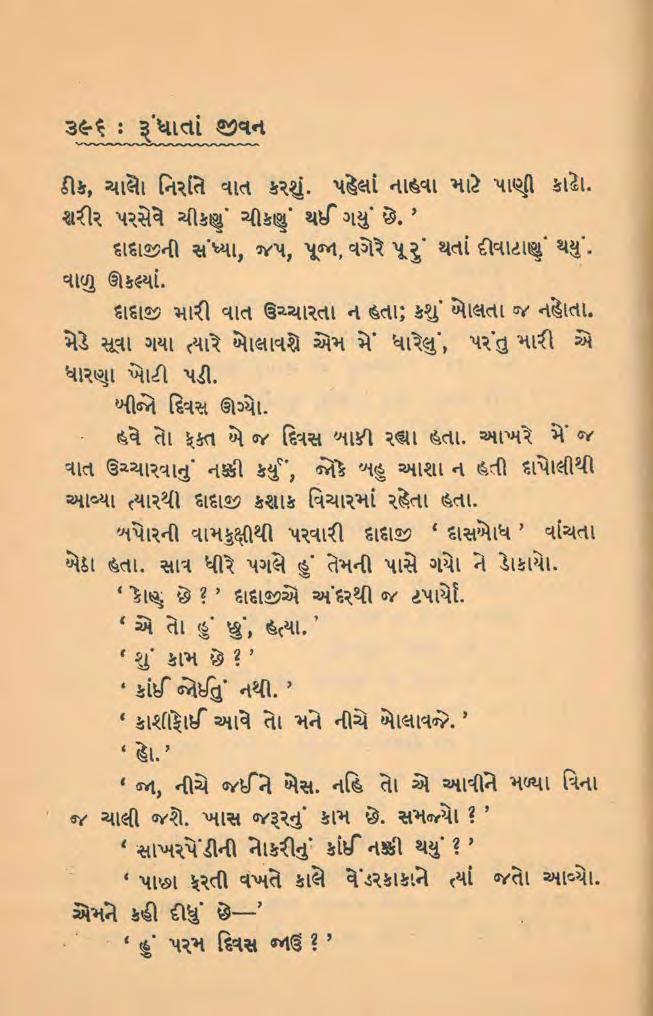 ૩૯૬ : રૂંધાતાં જીવન
ઠીક, ચાલો નિરાંતે વાત કરશું. પહેલાં નાહવા માટે પાણી કાઢો.
શરીર પરસેવે ચીકણું ચીકણું થઈ ગયું છે.’
દાદાજીની સંધ્યા, જપ, પૂજા, વગેરે પૂરું થતાં દીવાટાણું થયું.
વાળુ ઊકલ્યાં.
દાદાજી મારી વાત ઉચ્ચારતા ન હતા; કશું બોલતા જ નહોતા.
મેડે સૂવા ગયા ત્યારે બોલાવશે એમ મેં ધારેલું, પરંતુ મારી એ
ધારણા ખોટી પડી.
બીજો દિવસ ઊગ્યો.
હવે તો ફક્ત બે જ દિવસ બાકી રહ્યા હતા. આખરે મેં જ
વાત ઉચ્ચારવાનું નક્કી કર્યું, જોકે બહુ આશા ન હતી દાપોલીથી
આવ્યા ત્યારથી દાદાજી કશાક વિચારમાં રહેતા હતા.
બપોરની વામકુક્ષીથી પરવારી દાદાજી ‘ દાસબોધ ’ વાંચતા
બેઠા હતા. સાવ ધીરે પગલે હું તેમની પાસે ગયો ને ડોકાયો.
‘ કોણ છે ? ’ દાદાજીએ અંદરથી જ ટપાર્યો.
‘ એ તો હું છું, હત્યા. ’
‘ શું કામ છે ? ’
‘ કાંઈ જોઈતું નથી. ’
‘ કાશીફોઈ આવે તો મને નીચે બોલાવજે. ’
‘ હો. ’
‘ જા, નીચે જઈને બેસ. નહિ તો એ આવીને મળ્યા વિના
જ ચાલી જશે. ખાસ જરૂરનું કામ છે. સમજ્યો ? ’
‘ સાખરપેંડીની નોકરીનું કાંઈ નક્કી થયું ? ’
‘ પાછા ફરતી વખતે કાલે વેંડરકાકાને ત્યાં જતો આવ્યો.
એમને કહી દીધું છે—’
‘ હું પરમ દિવસ જાઉં ? ’